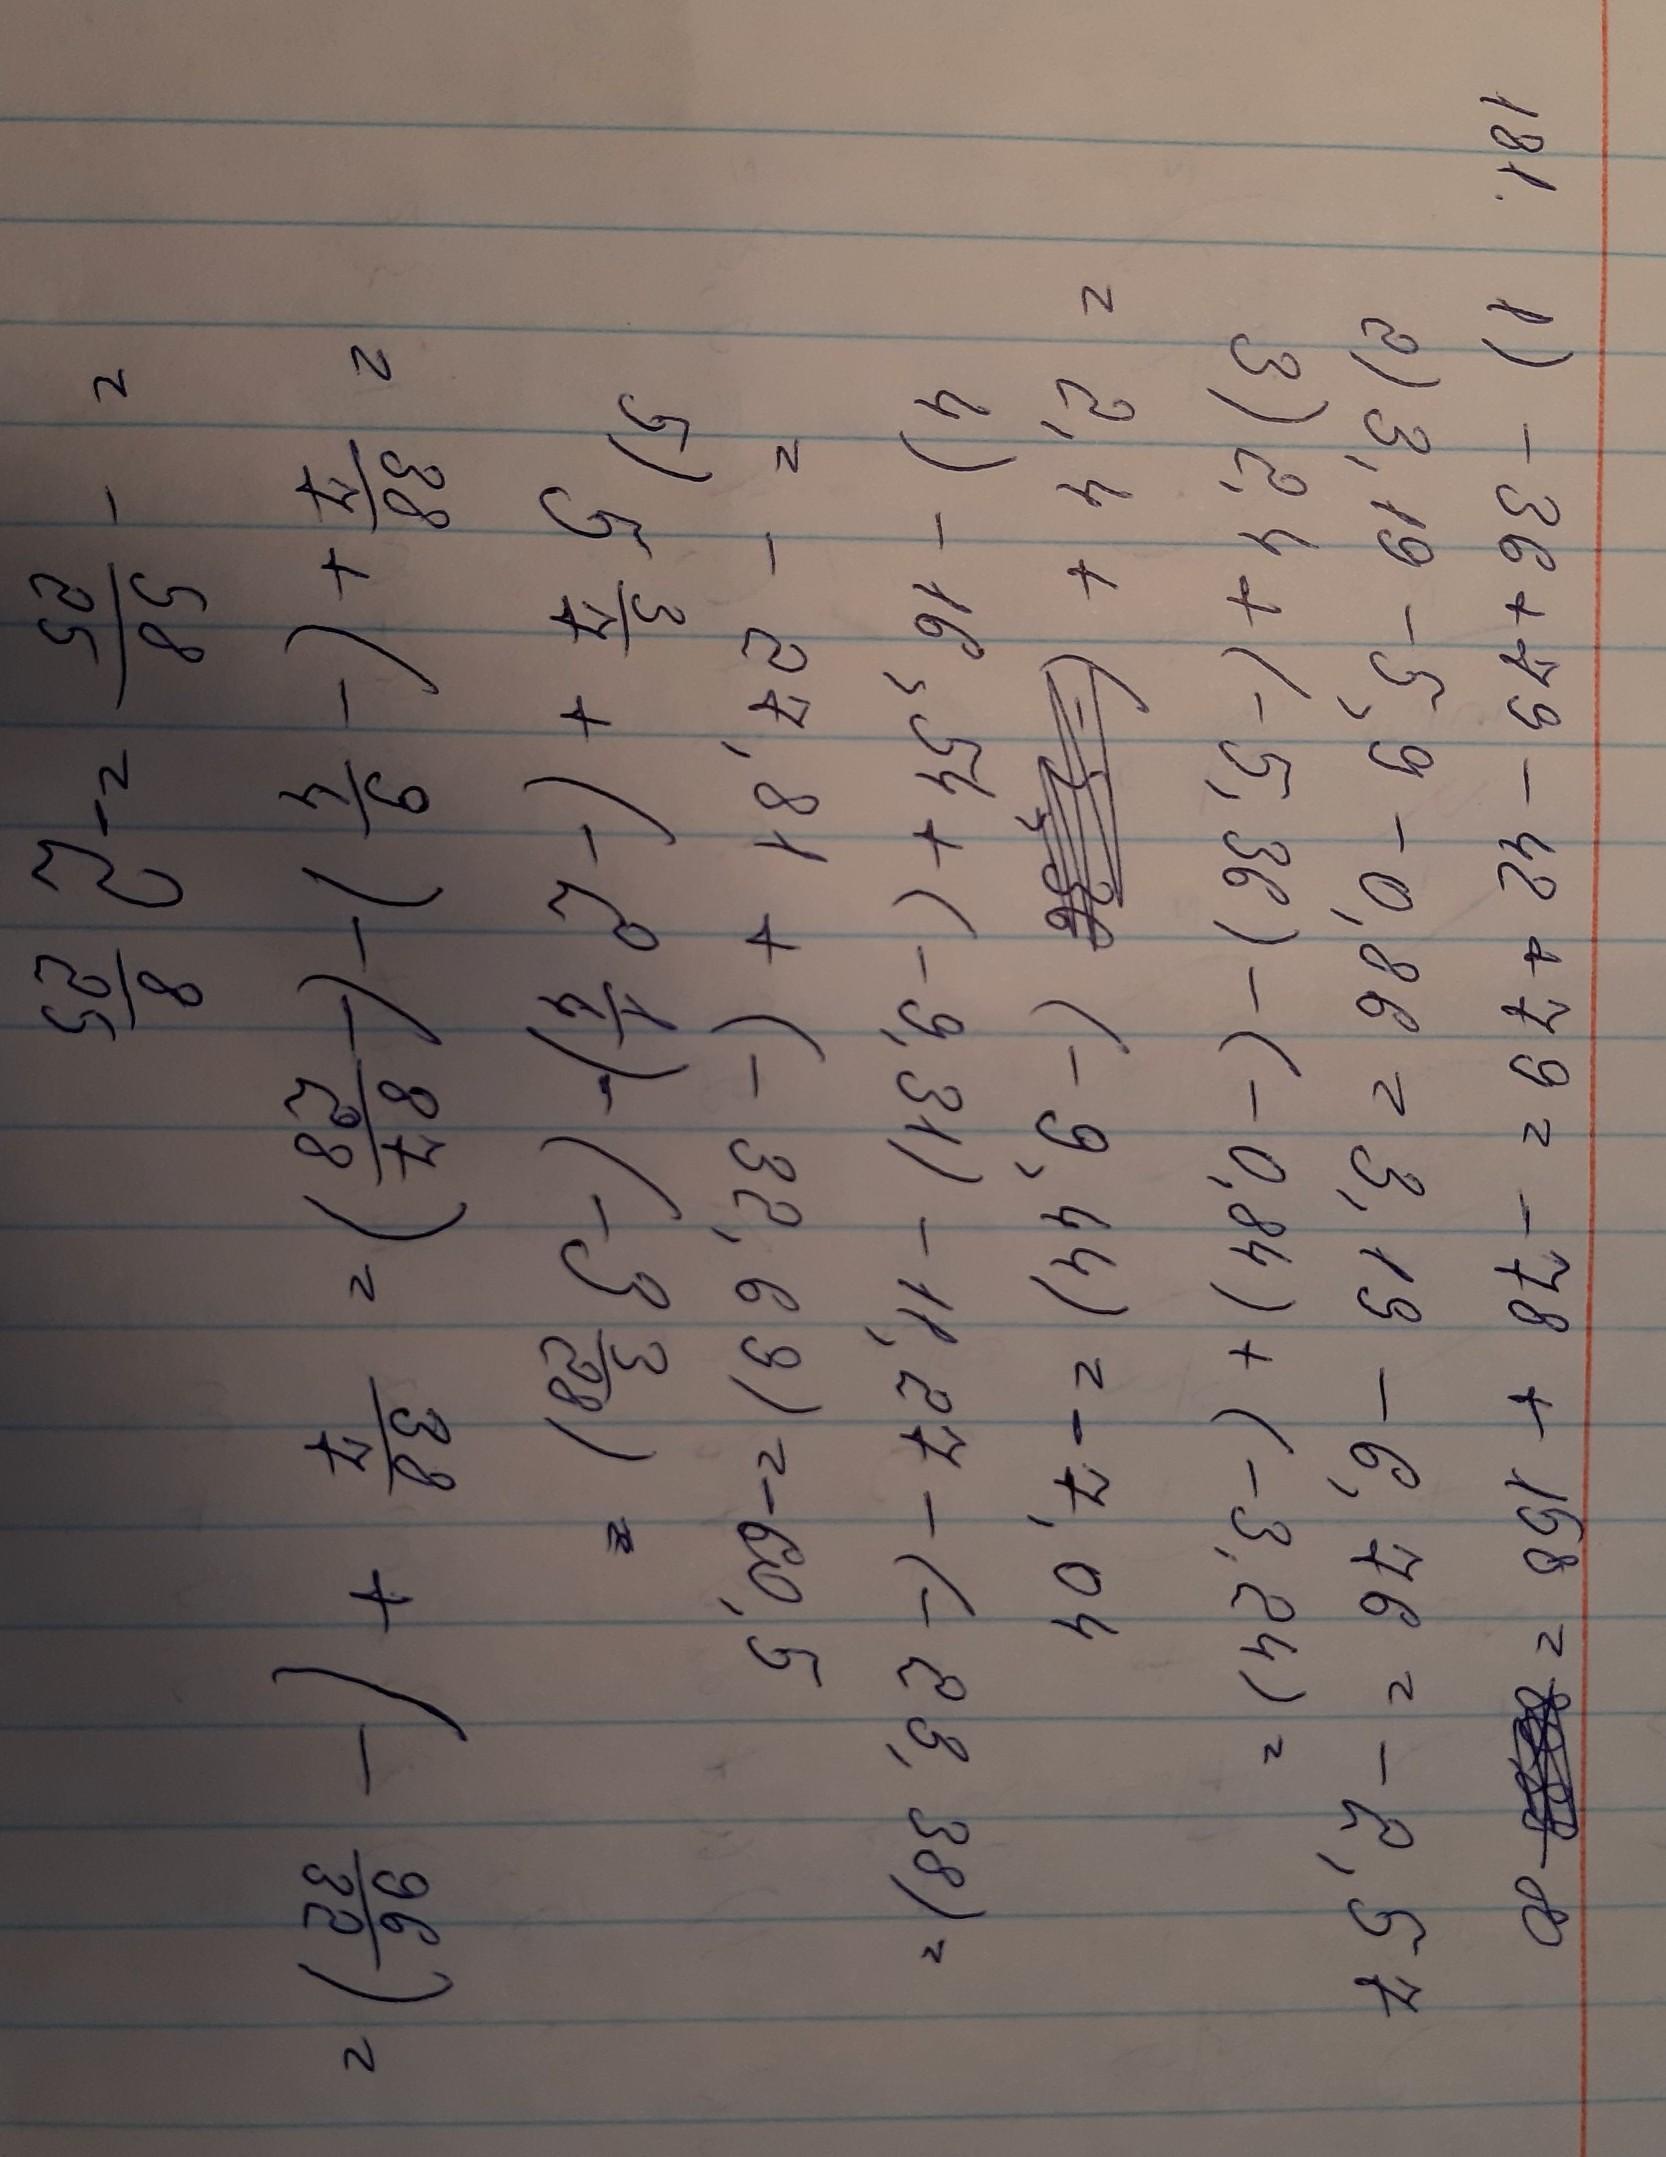 181. 1) - 36 + 79 - 42 + 79 = - 78 + 158 = 80
2) 3,19 - 5,9 - 0,86 = 3,19 - 6,76 = - 2,57
3) 2,4 + (- 5,36) - (- 0,84) + (- 3,24) =
= 2,4 + (- 9,44) = - 7,04
4) - 16,54 + (- 9,31) - 11,27 - (- 23,38) =
= - 27,81 + (- 32,69) = - 60,5
5) 5 3/7 + (- 2 1/4) - (- 3 3/28) =
= 38/7 + (- 9/4) - (- 87/28) = 38/7 + (- 96/32) =
= - 58/25 = - 2 8/25